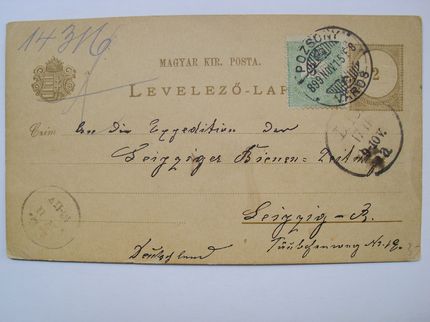 14316
MAGYAR KIR. POSTA.
LEVELEZŐ-LAP
POZSONY
899 NOV. 15
VÁROS
2
Czím An die Expedition der
Leipziger Bienen-Zeitung
Leipzig-R.
Täubchenweg Nr. 19.
Deutschland